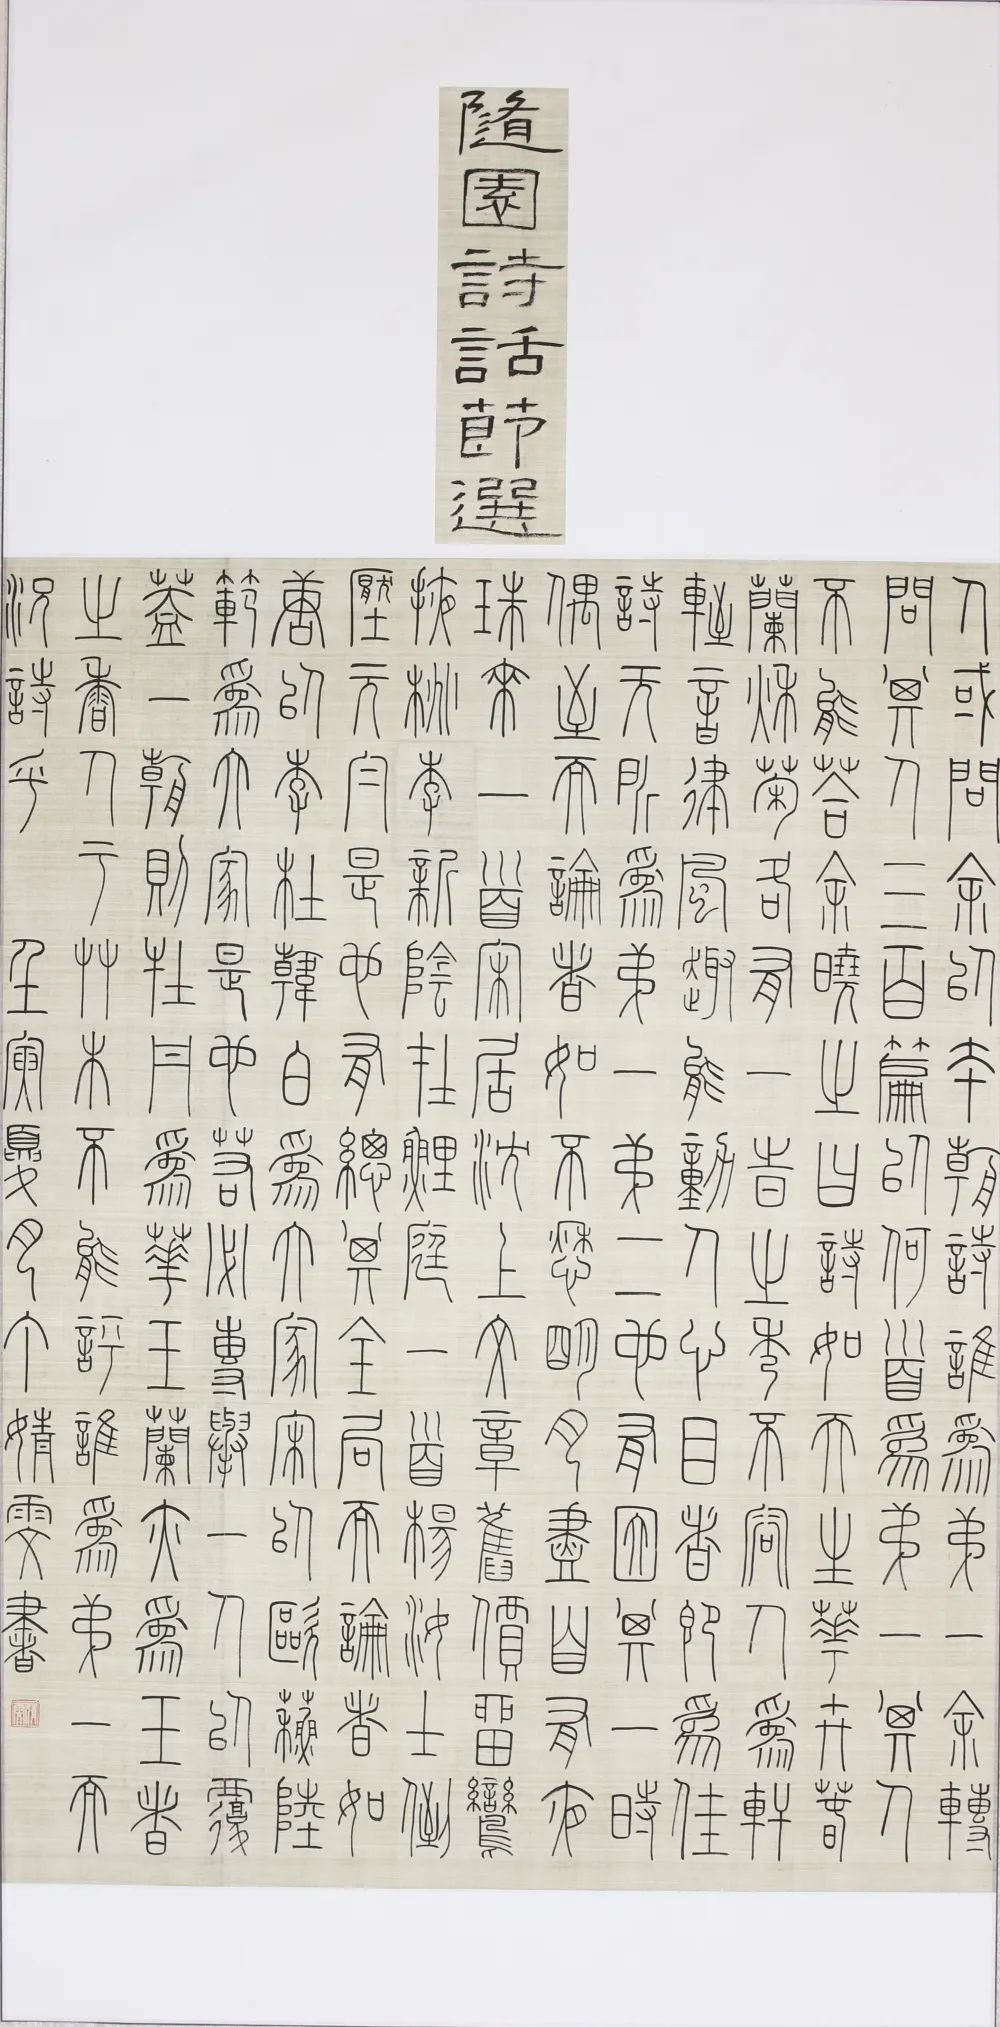 隨園詩話節選
人或問余以本朝詩誰爲弟一余轉
問其人三百篇以何首爲弟一其人
不能答余曉之曰詩如天生華卉春
蘭秋菊各有一旹之秀不容人爲軒
輊音律風趣能動人心目者即爲佳
詩无所爲弟一弟二也有因其一時
偶至而論者如不愁明月盡自有夜
珠來一首宋居沈上文章舊價畱鸞
掖桃李新陰在鯉庭一首楊汝士倒
壓元白是也有總其全局而論者如
唐以李杜韓白爲大家宋以歐蘇陸
範爲大家是也若必專舉一人以覆
蓋一朝則牡丹爲華王蘭亦爲王者
之香人于艸木不能評誰爲弟一而
況詩乎 壬寅夏月丁婧雯書